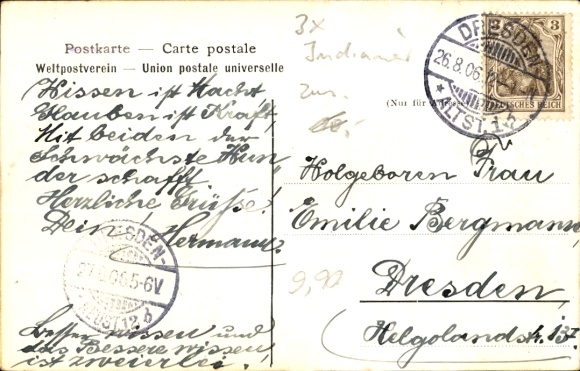 Postkarte — Carte postale
Weltpostverein — Union postale universelle
Wissen ist Macht
Glauben ist Kraft,
Mit beiden der
Schwächste Hun
der schafft.
Herzliche Grüsse!
Dein Hermann.
Besser wissen und
das Bessere wissen
ist zweierlei!
3x
Indianer
zur.
9,90
(Nur für
3 3
DEUTSCHES REICH
DRESDEN-
26.8.06.
* ALTST. 12.
Holgeboren Frau
Emilie Bergmann,
Dresden,
Helgolandstr. 13I.
DRESDEN-
5-6V.
ALTST. 12 b